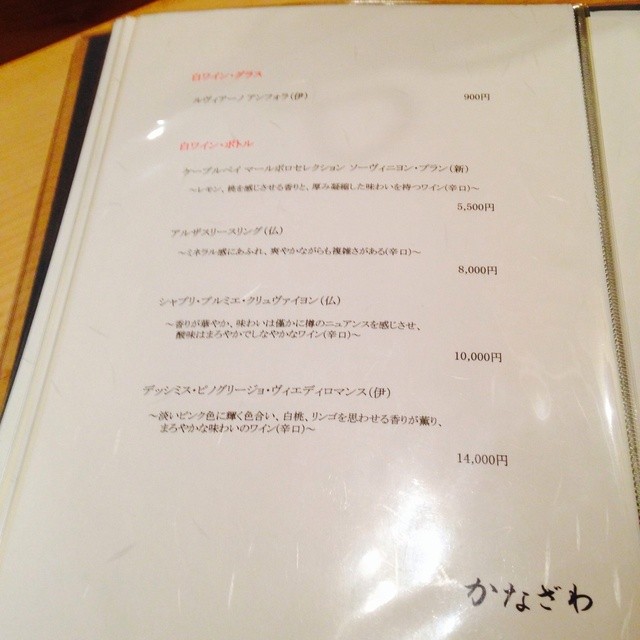 白ワイン・グラス
ルヴィアーノ アンフォラ(伊) 900円
白ワイン・ボトル
ケープルベイ マールボロセレクション ソーヴィニヨン・ブラン(新)
～レモン、桃を感じさせる香りと、厚み凝縮した味わいを持つワイン(辛口)～
5,500円
アルザスリースリング(仏)
～ミネラル感にあふれ、爽やかながらも複雑さがある(辛口)～
8,000円
シャブリ・プルミエ・クリュヴァイヨン(仏)
～香りが華やか、味わいは僅かに樽のニュアンスを感じさせ、
酸味はまろやかでしなやかなワイン(辛口)～
10,000円
デッシミス・ピノグリージョ・ヴィエディロマンス(伊)
～淡いピンク色に輝く色合い、白桃、リンゴを思わせる香りが薫り、
まろやかな味わいのワイン(辛口)～
14,000円
かなざわ